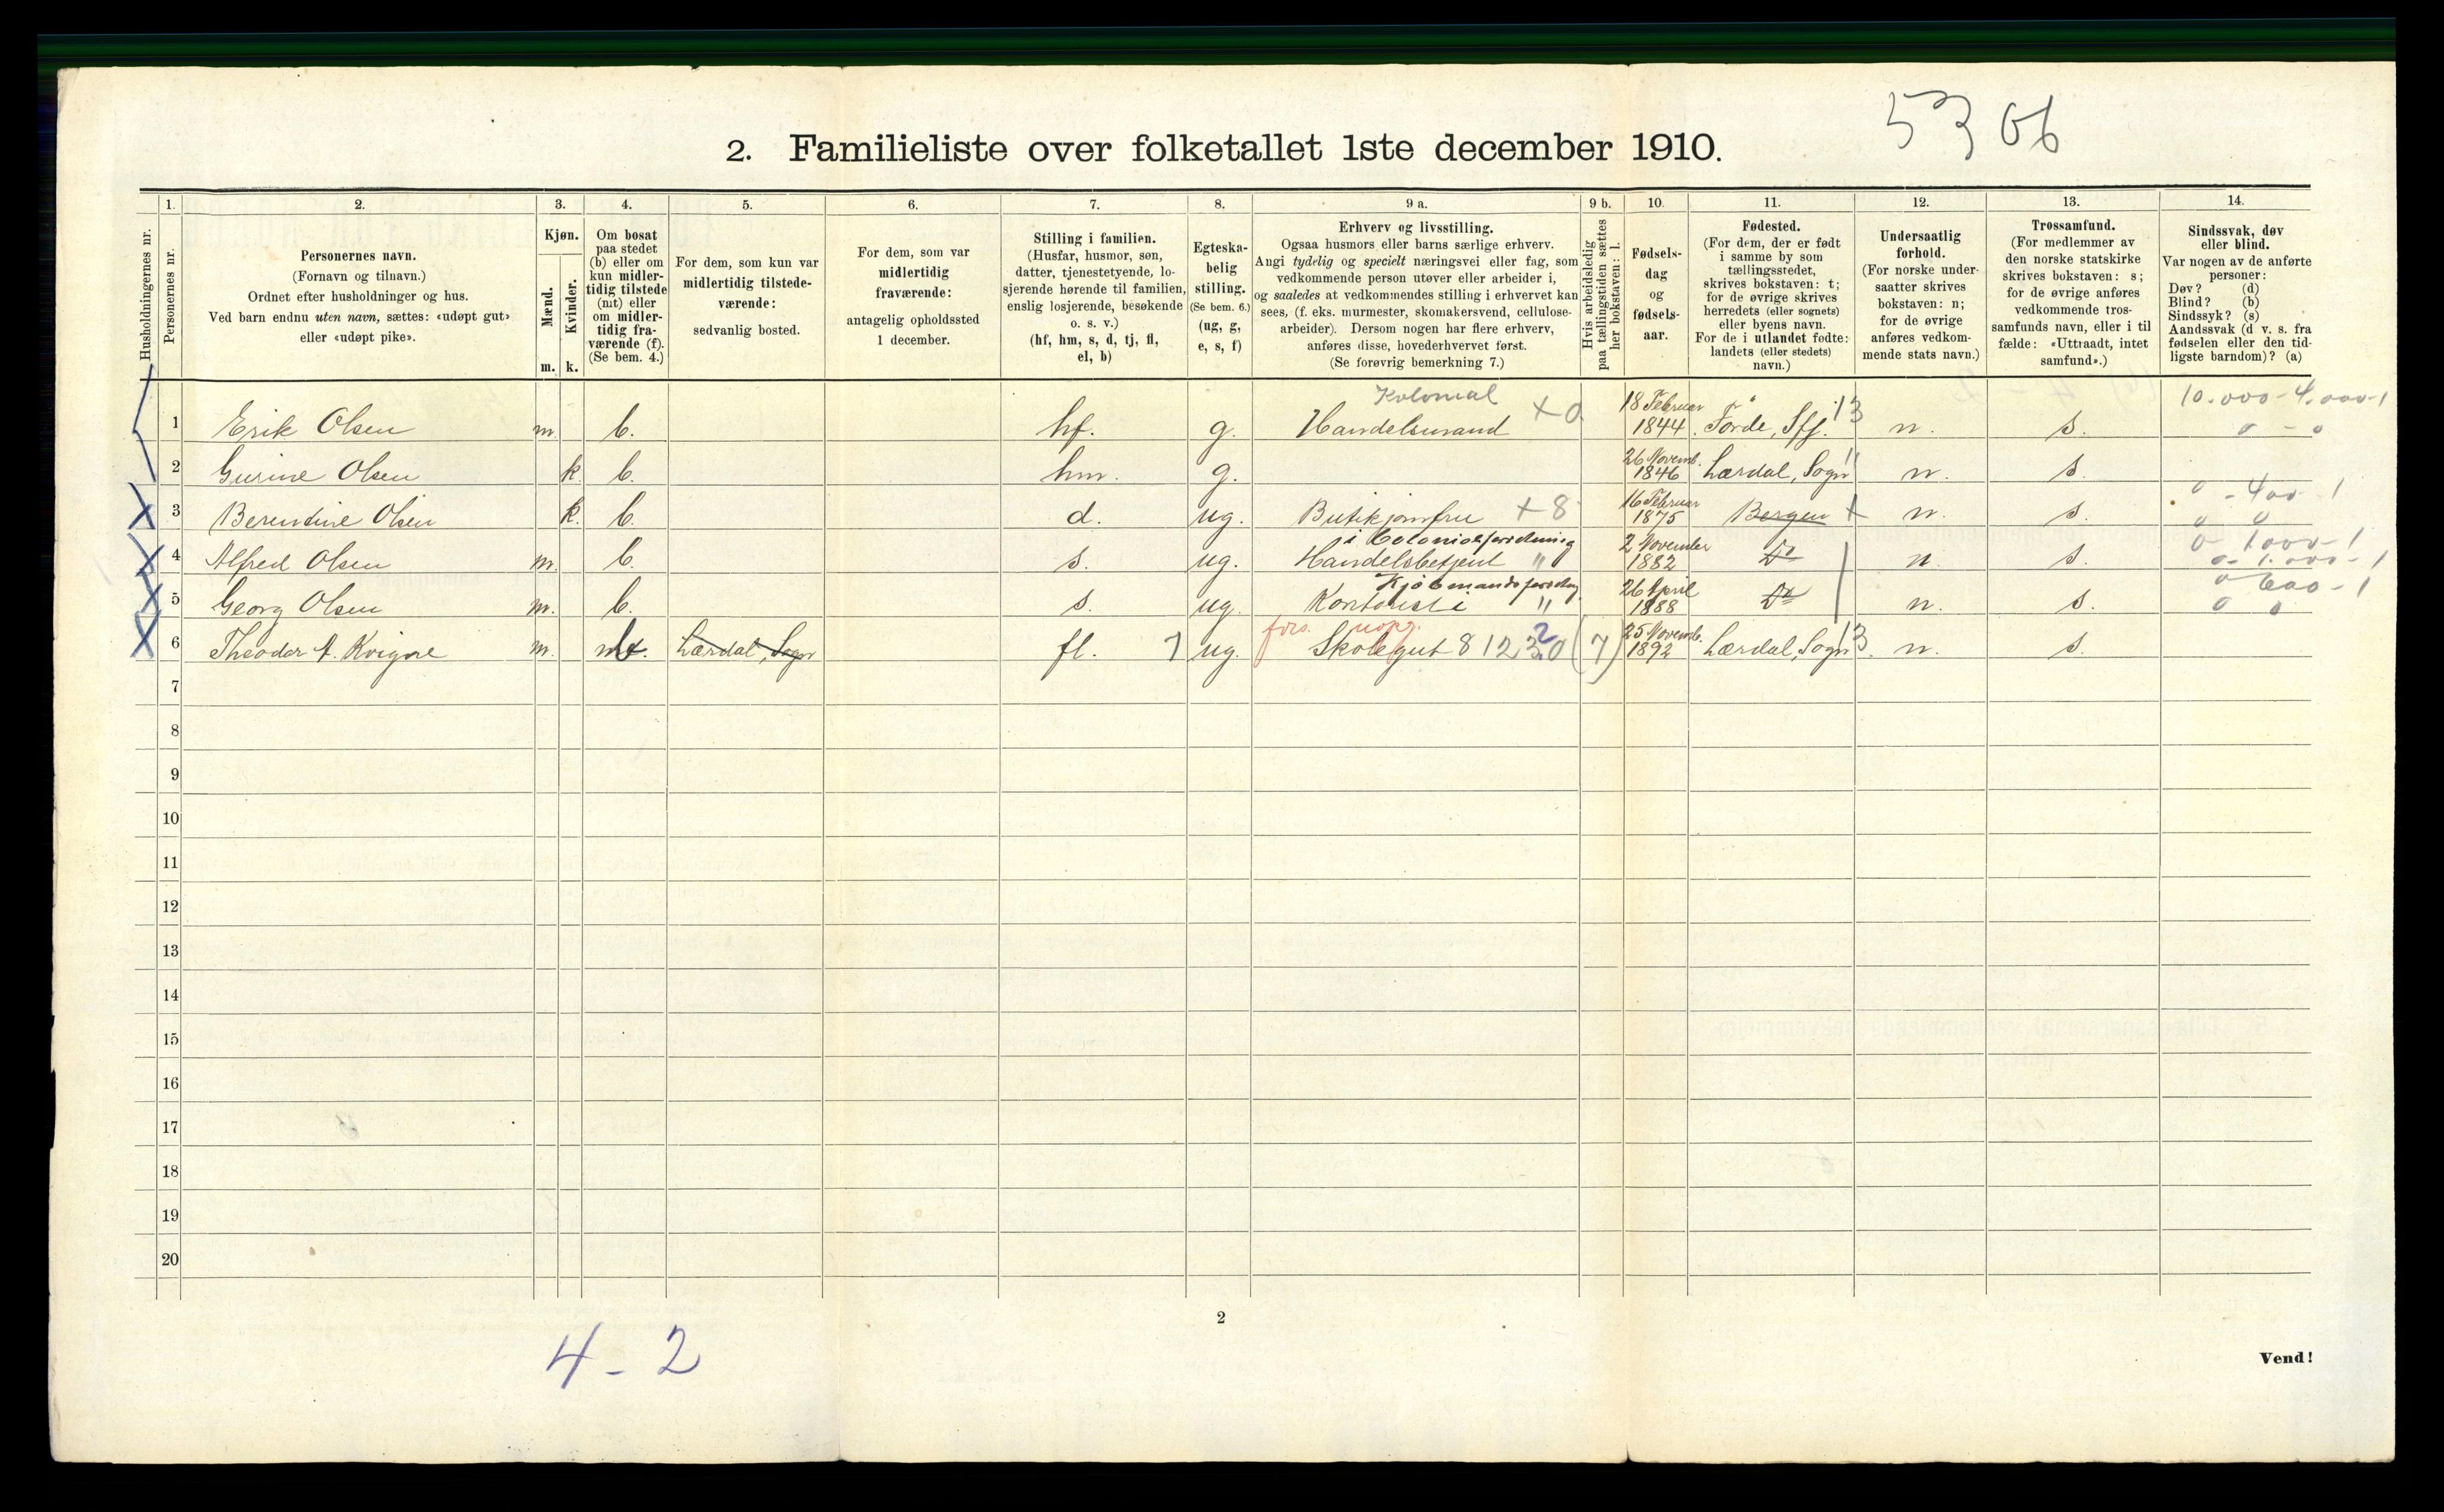 5306
2. Familieliste over folketallet 1ste december 1910.
Husholdningernes nr.
1.
Personernes nr.
2.
Personernes navn.
(Fornavn og tilnavn.)
Ordnet efter husholdninger og hus.
Ved barn endnu uten navn, sættes: «udøpt gut»
eller «udøpt pike».
3.
Kjøn.
Mænd.
Kvinder.
m. k.
4.
Om bosat
paa stedet
(b) eller om
kun midler-
tidig tilstede
(mt) eller
om midler-
tidig fra-
værende (f).
(Se bem. 4.)
5.
For dem, som kun var
midlertidig tilstede-
værende:
sedvanlig bosted.
6.
For dem, som var
midlertidig
fraværende:
antagelig opholdssted
1 december.
7.
Stilling i familien.
(Husfar, husmor, søn,
datter, tjenestetyende, lo-
sjerende hørende til familien,
enslig losjerende, besøkende
o. s. v.)
(hf, hm, s, d, tj, fl,
el, b)
8.
Egteska-
belig
stilling.
(Se bem. 6.)
(ug, g,
e, s, f)
9 a.
Erhverv og livsstilling.
Ogsaa husmors eller barns særlige erhverv.
Angi tydelig og specielt næringsvei eller fag, som
vedkommende person utøver eller arbeider i,
og saaledes at vedkommendes stilling i erhvervet kan
sees, (f. eks. murmester, skomakersvend, cellulose-
arbeider). Dersom nogen har flere erhverv,
anføres disse, hovederhvervet først.
(Se forøvrig bemerkning 7.)
9 b.
Hvis arbeidsledig
paa tællingstiden sættes
her bokstaven: l.
10.
Fødsels-
dag
og
fødsels-
aar.
11.
Fødested.
(For dem, der er født
i samme by som
tællingsstedet,
skrives bokstaven: t;
for de øvrige skrives
herredets (eller sognets)
eller byens navn.
For de i utlandet fødte:
landets (eller stedets)
navn.)
12.
Undersaatlig
forhold.
(For norske under-
saatter skrives
bokstaven: n;
for de øvrige
anføres vedkom-
mende stats navn.)
13.
Trossamfund.
(For medlemmer av
den norske statskirke
skrives bokstaven: s;
for de øvrige anføres
vedkommende tros-
samfunds navn, eller i til-
fælde: «Uttraadt, intet
samfund».)
14.
Sindssvak, døv
eller blind.
Var nogen av de anførte
personer:
Døv? (d)
Blind? (b)
Sindssyk? (s)
Aandssvak (d v. s. fra
fødselen eller den tid-
ligste barndom)? (a)
Kolonial 18 Februar 10.000-4.000-1
1 Erik Olsen m. b. hf. g. Handelsmand +0 1844 Førde, Sfj. 13 n. s. 0 - 0
26 Novemb.
2 Gurine Olsen k. b. hm. g. 1846 Lærdal, Sogn 11 n. s.
16 Februar 0 - 400 - 1
3 Berentine Olsen k. b. d. ug. Butikjomfru +8 1875 Bergen + n. s. 0 0
i Colonialforretning 2 November 0 1000-1
4 Alfred Olsen m. b. s. ug. Handelsbetjent " 1882 Do n. s. 0-1.000-1
Kjøbmandsforretng 26 April 0 600-1
5 Georg Olsen m. b. s. ug. Kontorist i " 1888 Do n. s. 0 0
fors. uopg. 2 25 Novemb.
6 Theodor A. Kvigne m. mt. Lærdal, Sogn fl. 7 ug. Skolegut 8 12 3 0 (7) 1892 Lærdal, Sogn 13. n. s.
7
8
9
10
11
12
13
14
15
16
17
18
19
20
2
4 - 2
Vend!